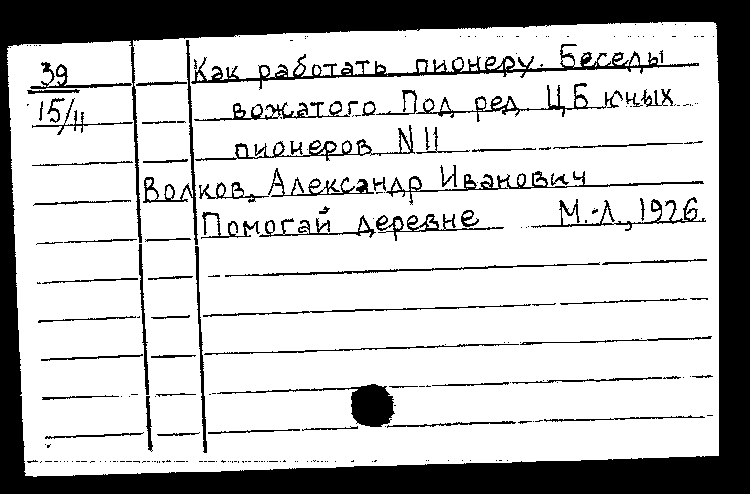 39 Как работать пионеру. Беседы
15/11 вожатого. Под ред. ЦБ юных
пионеров. N 11
Волков, Александр Иванович
Помогай деревне М.-Л., 1926.